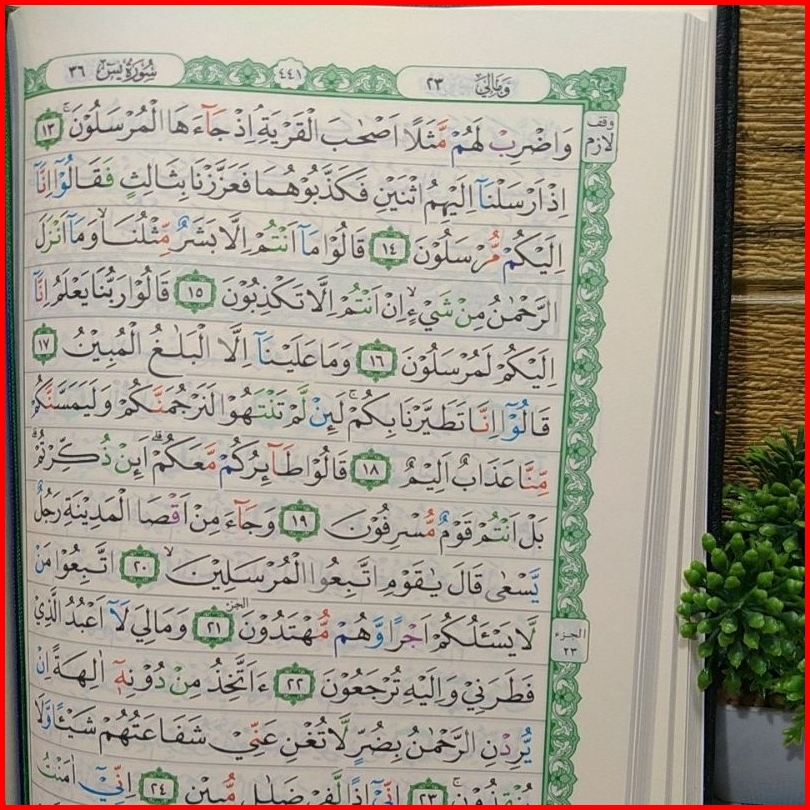 سُورَةُ يٰسٓ ٣٦
٤٤١
وَمَالِيَ ٢٣
وقف لازم
وَاضْرِبْ لَهُمْ مَّثَلًا اَصْحٰبَ الْقَرْيَةِۘ اِذْ جَآءَهَا الْمُرْسَلُوْنَۚ ١٣
اِذْ اَرْسَلْنَآ اِلَيْهِمُ اثْنَيْنِ فَكَذَّبُوْهُمَا فَعَزَّزْنَا بِثَالِثٍ فَقَالُوْٓا اِنَّآ
اِلَيْكُمْ مُّرْسَلُوْنَ ١٤ قَالُوْا مَآ اَنْتُمْ اِلَّا بَشَرٌ مِّثْلُنَاۙ وَمَآ اَنْزَلَ
الرَّحْمٰنُ مِنْ شَيْءٍۙ اِنْ اَنْتُمْ اِلَّا تَكْذِبُوْنَ ١٥ قَالُوْا رَبُّنَا يَعْلَمُ اِنَّآ
اِلَيْكُمْ لَمُرْسَلُوْنَ ١٦ وَمَا عَلَيْنَآ اِلَّا الْبَلٰغُ الْمُبِيْنُ ١٧
قَالُوْٓا اِنَّا تَطَيَّرْنَا بِكُمْۚ لَىِٕنْ لَّمْ تَنْتَهُوْا لَنَرْجُمَنَّكُمْ وَلَيَمَسَّنَّكُمْ
مِّنَّا عَذَابٌ اَلِيْمٌ ١٨ قَالُوْا طَآىِٕرُكُمْ مَّعَكُمْۗ اَىِٕنْ ذُكِّرْتُمْۗ
بَلْ اَنْتُمْ قَوْمٌ مُّسْرِفُوْنَ ١٩ وَجَآءَ مِنْ اَقْصَا الْمَدِيْنَةِ رَجُلٌ
يَّسْعٰى قَالَ يٰقَوْمِ اتَّبِعُوا الْمُرْسَلِيْنَۙ ٢٠ اتَّبِعُوْا مَنْ
لَّا يَسْـَٔلُكُمْ اَجْرًا وَّهُمْ مُّهْتَدُوْنَ ٢١ الجزء وَمَالِيَ لَآ اَعْبُدُ الَّذِيْ
الجزء ٢٣
فَطَرَنِيْ وَاِلَيْهِ تُرْجَعُوْنَ ٢٢ ءَاَتَّخِذُ مِنْ دُوْنِهٖٓ اٰلِهَةً اِنْ
يُّرِدْنِ الرَّحْمٰنُ بِضُرٍّ لَّا تُغْنِ عَنِّيْ شَفَاعَتُهُمْ شَيْـًٔا وَّلَا
يُنْقِذُوْنِۚ ٢٣ اِنِّيْٓ اِذًا لَّفِيْ ضَلٰلٍ مُّبِيْنٍ ٢٤ اِنِّيْٓ اٰمَنْتُ